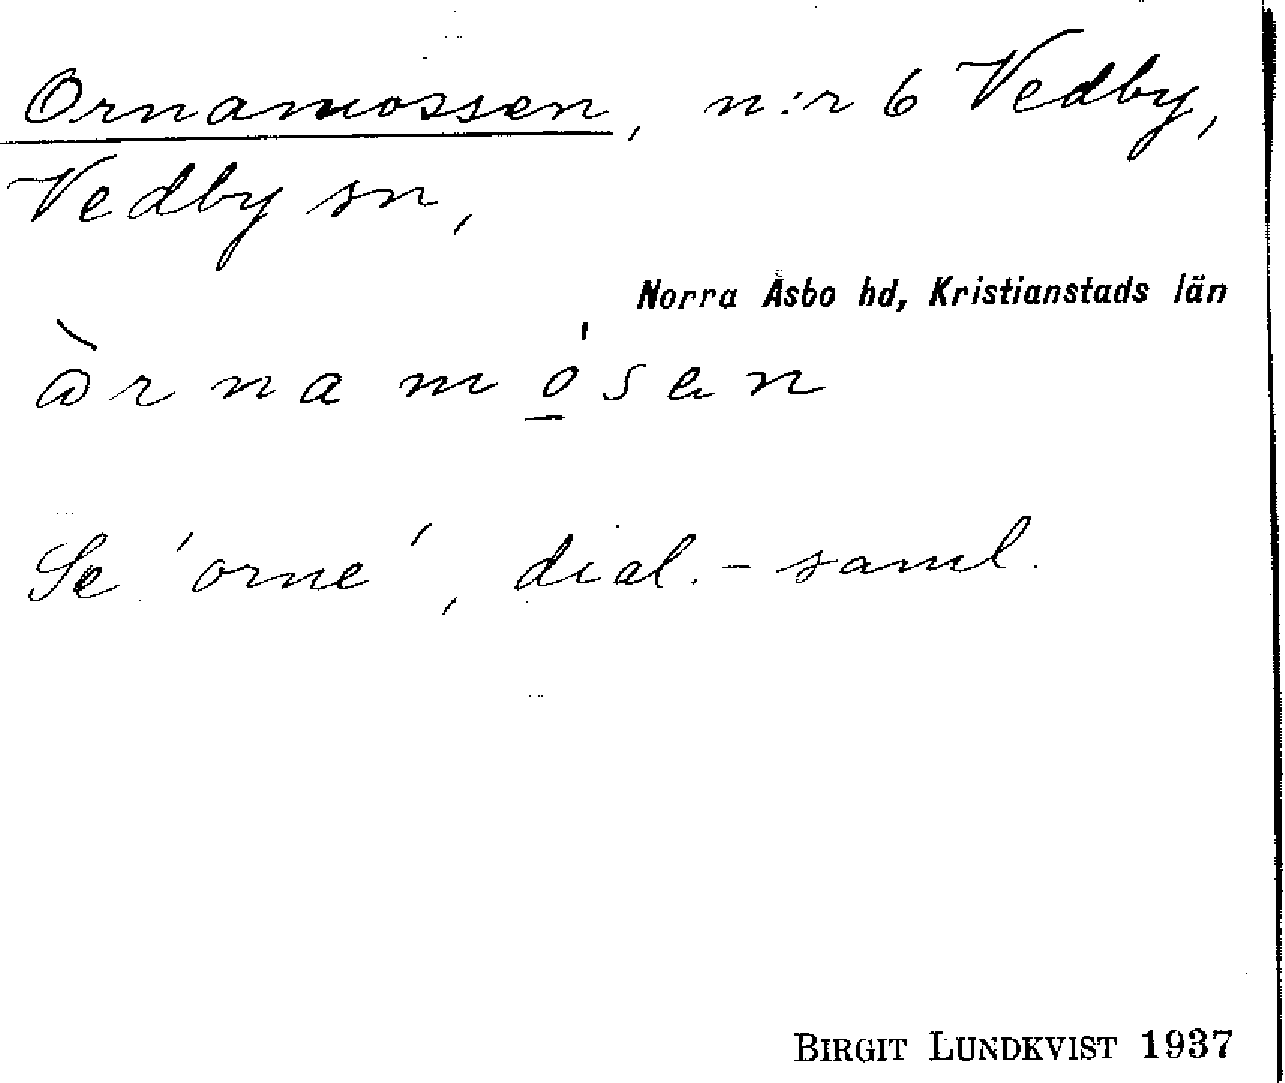 Ornamossen, n:r 6 Vedby,
Vedby sn,
Norra Åsbo hd, Kristianstads län
ὼrnamo̱̍sen
Se 'orne', dial.-saml.
BIRGIT LUNDKVIST 1937